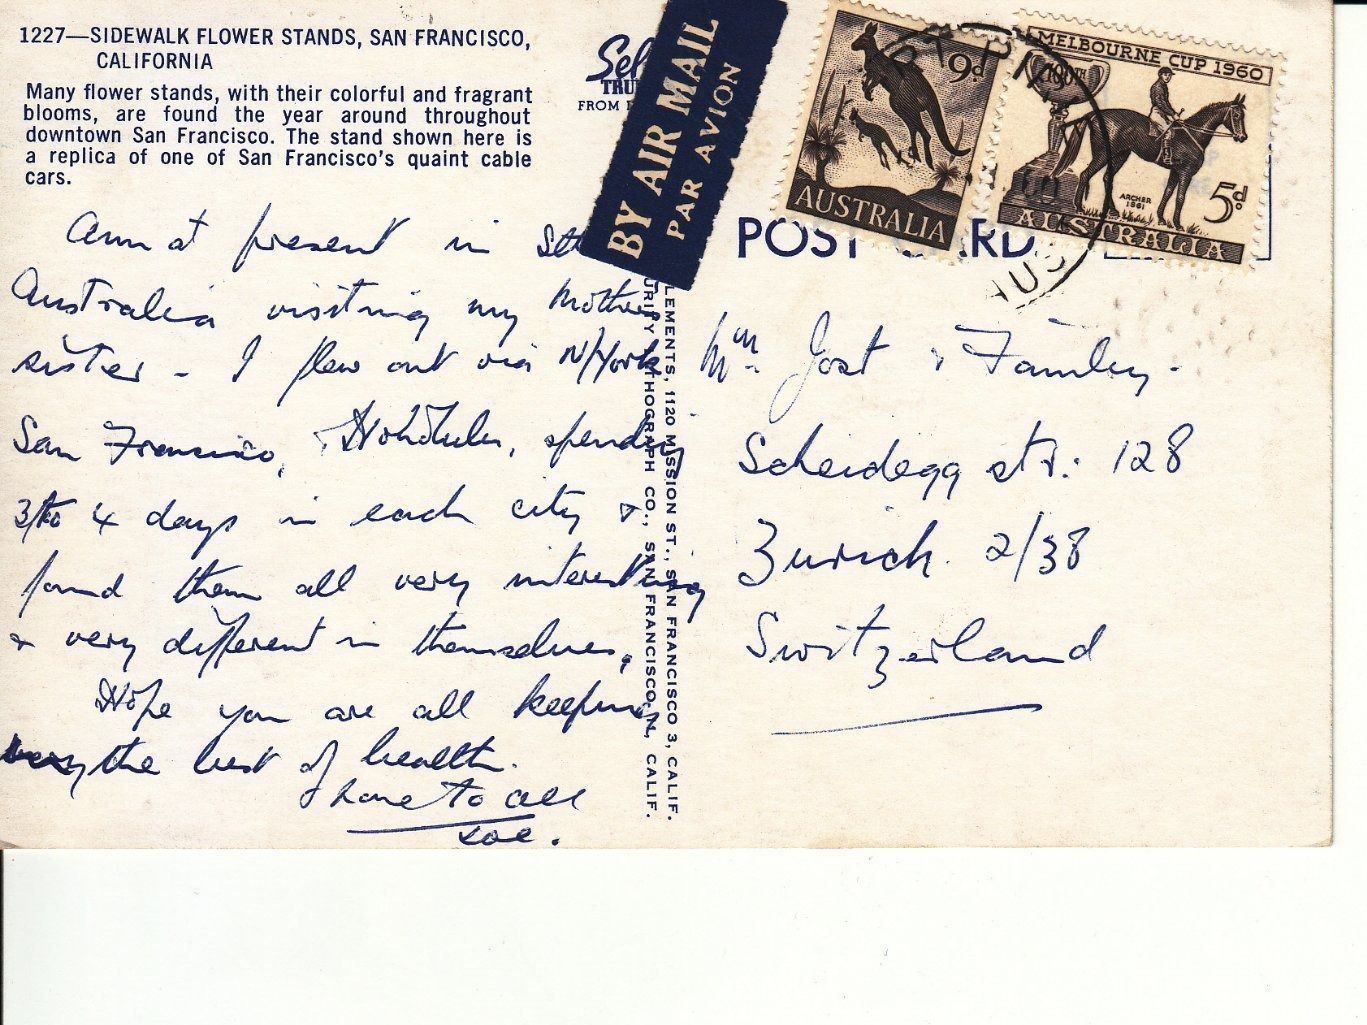 1227—SIDEWALK FLOWER STANDS, SAN FRANCISCO,
CALIFORNIA
Many flower stands, with their colorful and fragrant
blooms, are found the year around throughout
downtown San Francisco. The stand shown here is
a replica of one of San Francisco's quaint cable
cars.
FROM
BY AIR MAIL
PAR AVION
9d
AUSTRALIA
MELBOURNE CUP 1960
100TH
ARCHER
1861
5d.
AUSTRALIA
AUST
POST CARD
Am at present in Sth
Australia visiting my Mother
sister - I flew out via N/York
San Francisco, & Honolulu, spending
3 to 4 days in each city &
found them all very interesting
& very different in themselves.
Hope you are all keeping
very the best of health.
Love to all
Mrs Jost & Family.
Scheidegg str: 128
Zurich. 2/38
Switzerland
LEMENTS, 1120 MISSION ST., SAN FRANCISCO 3, CALIF.
URITY LITHOGRAPH CO., SAN FRANCISCO, CALIF.